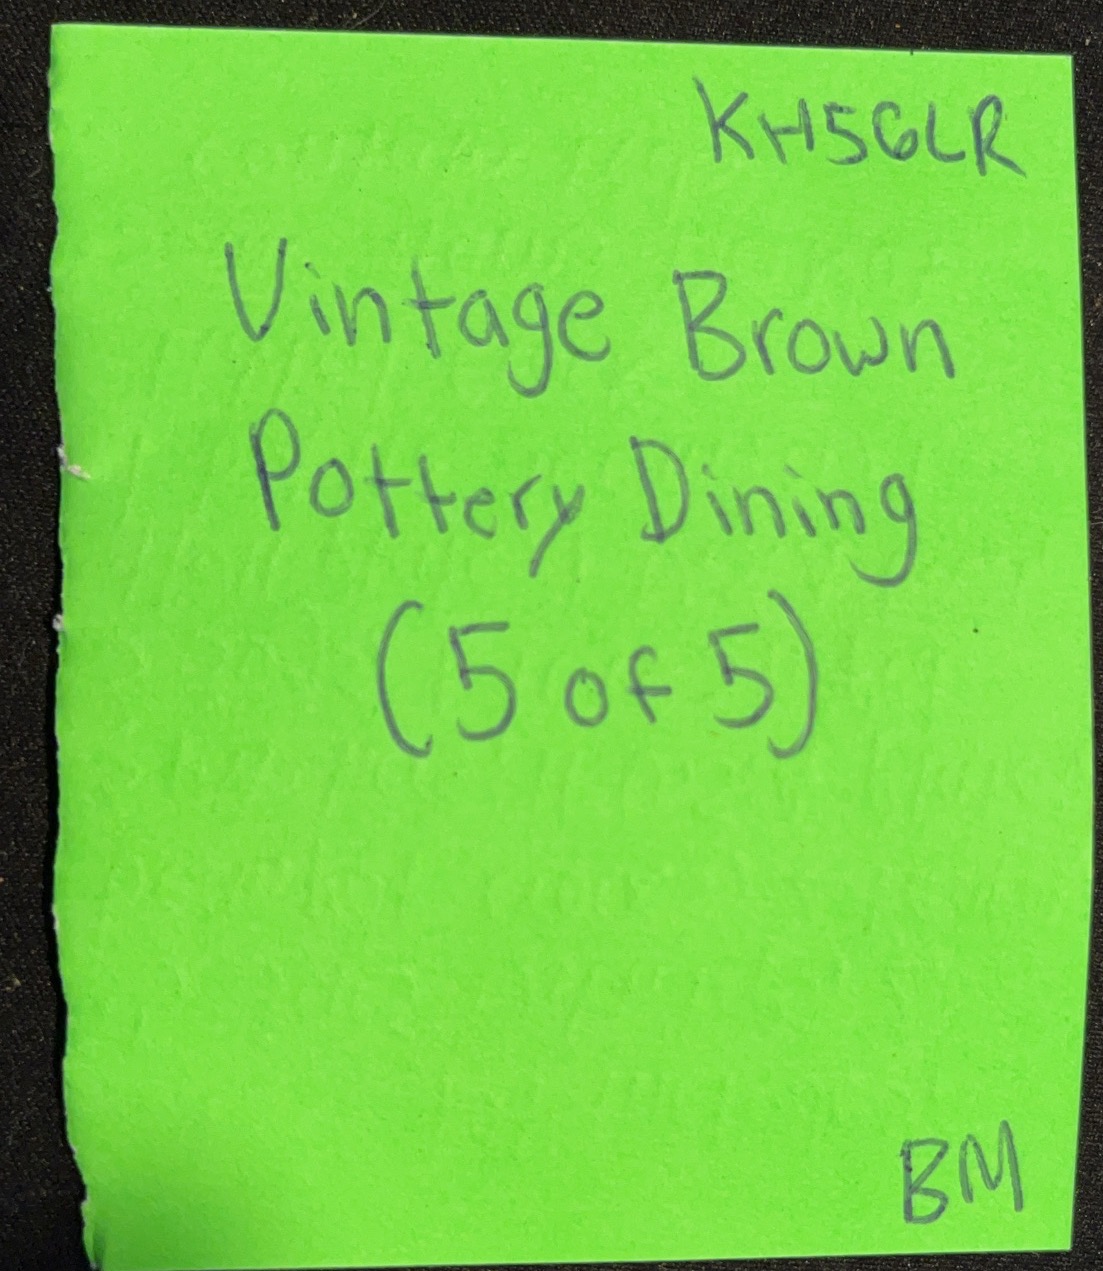 KH5GLR
Vintage Brown
Pottery Dining
(5 of 5)
BM